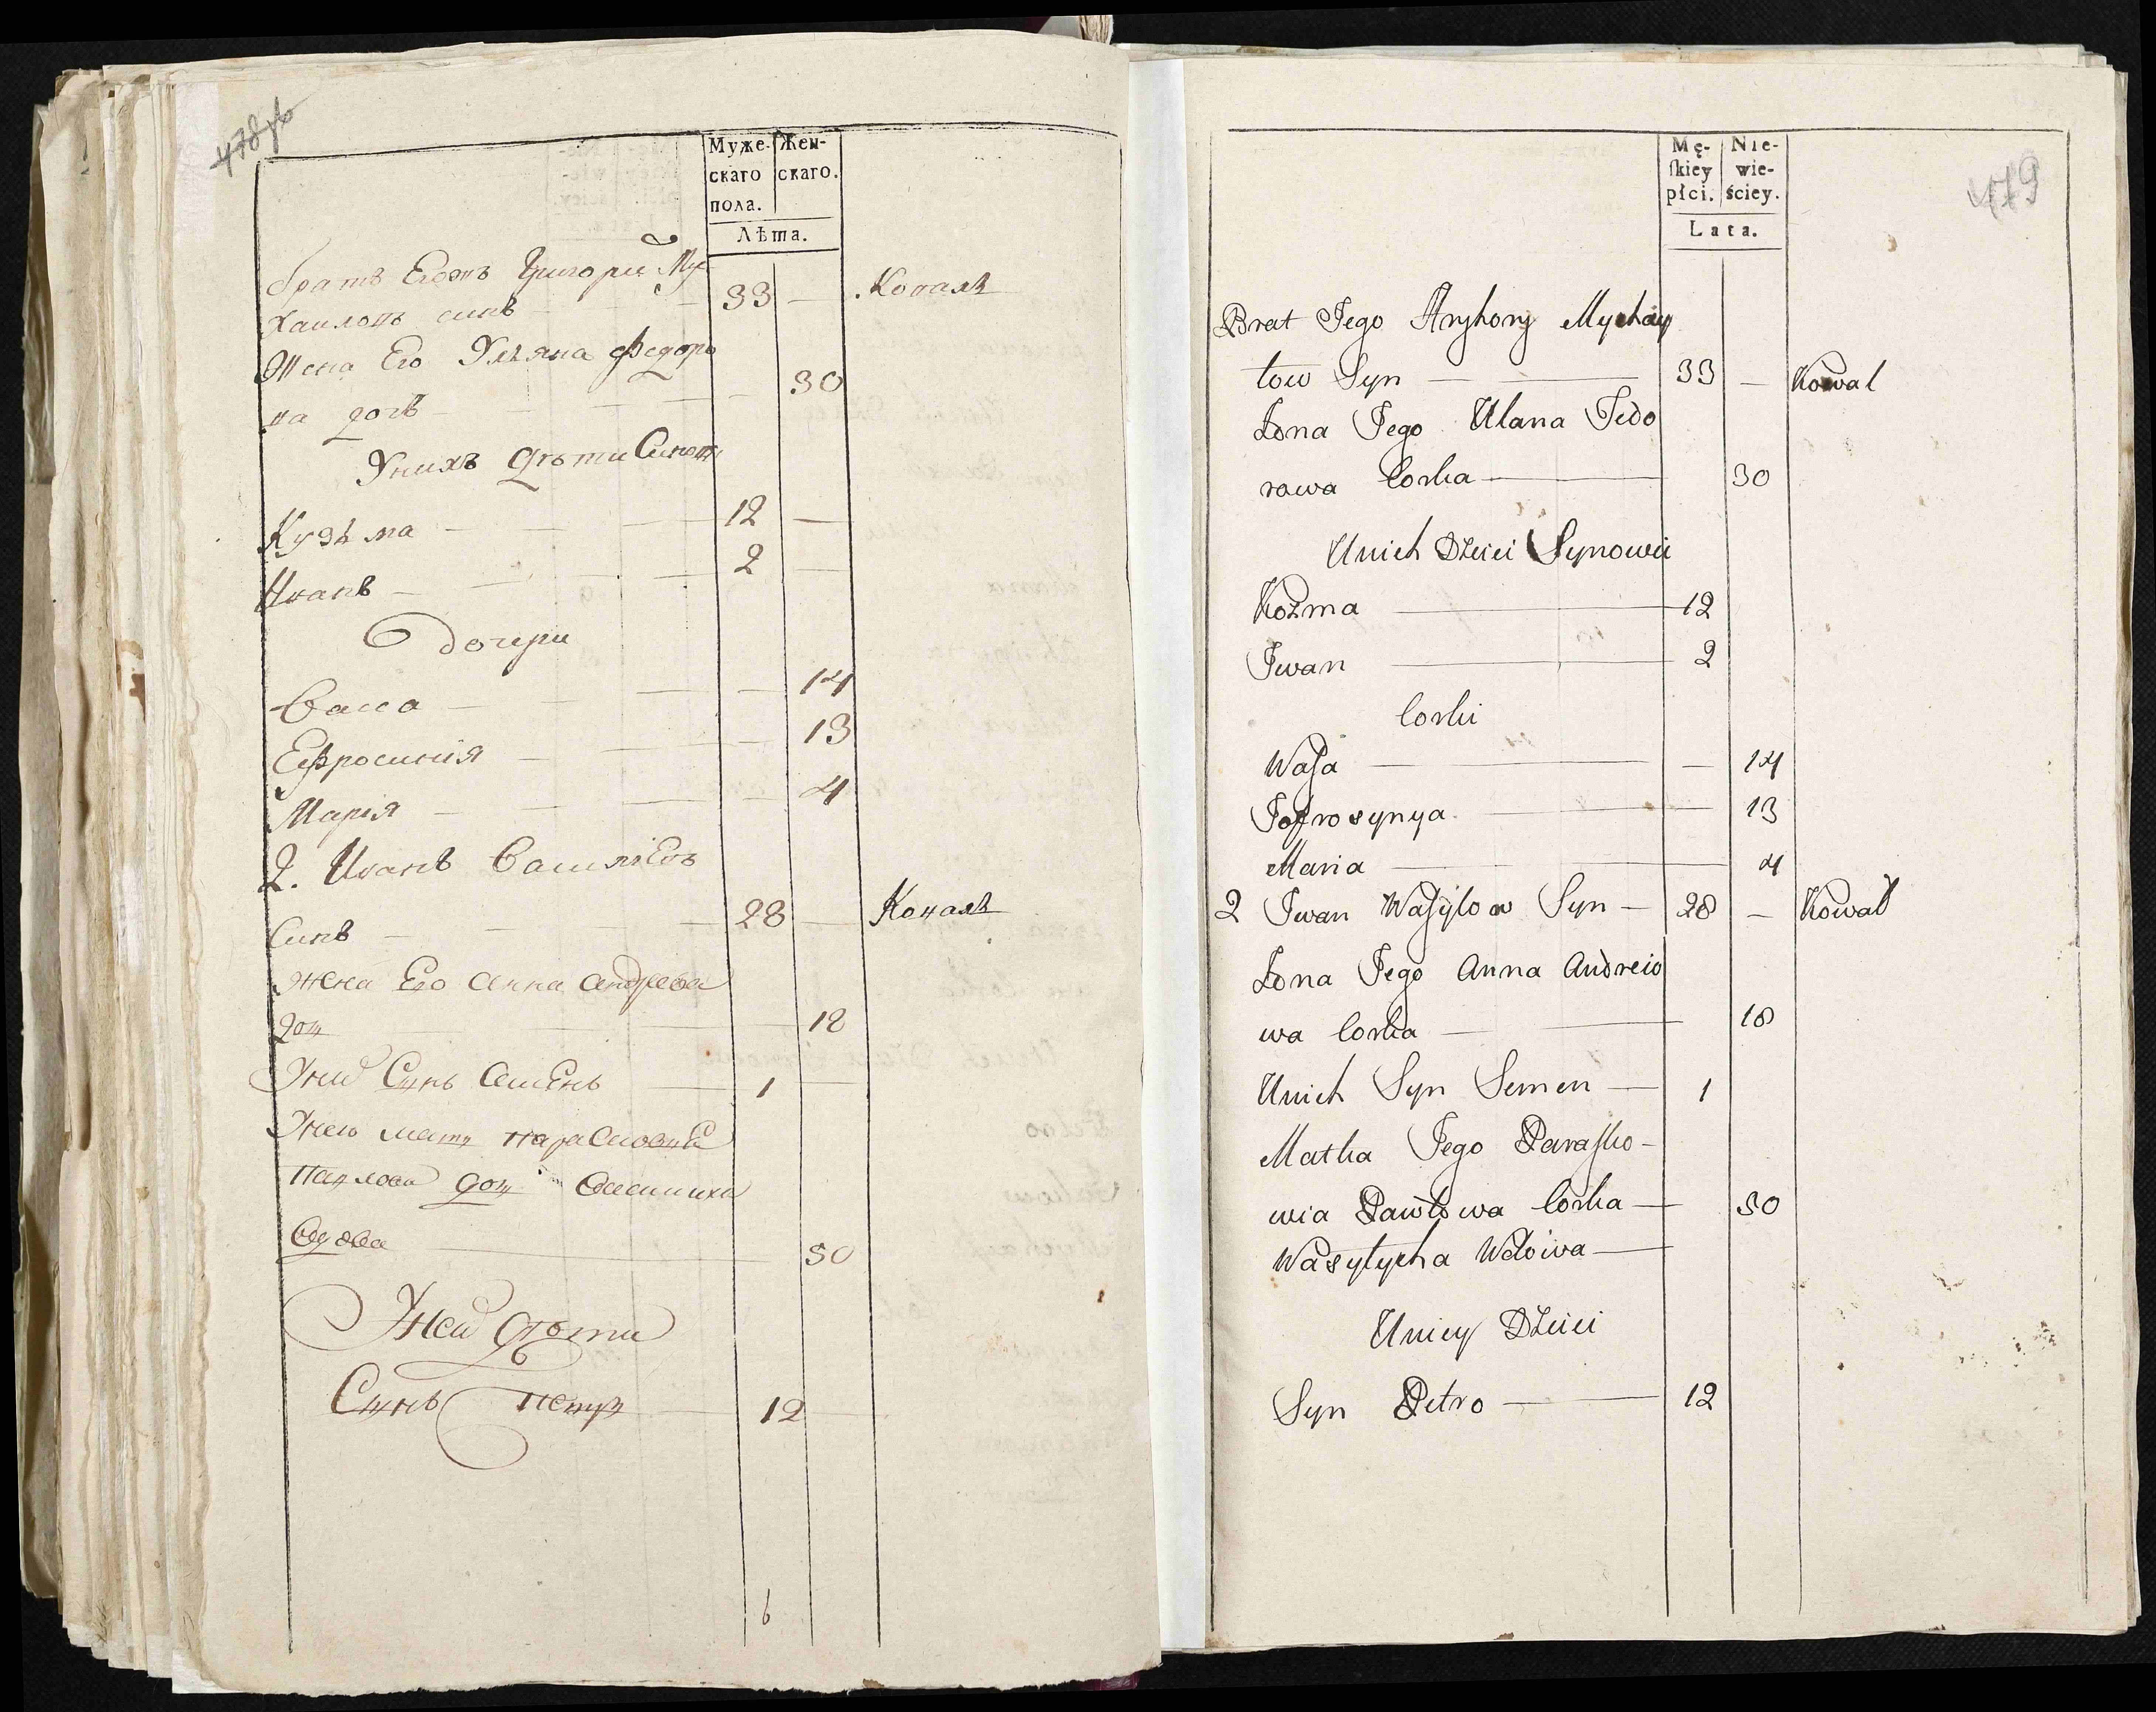 478 об
Муже- Жен-
скаго скаго.
пола.
Лѣта.
братъ Егожъ Григорей Му-
хаиловъ синъ 33 — Коваль
Жена Его Уляна Федоро
ва дочъ — 30
Унихъ дѣти Синови
Кузьма — 12 —
Иванъ — 2 —
дочери
Васса — 14
Ефросинія — 13
Марія — 4
2. Иванъ Василіевъ
Синъ — 28 — Коваль
жена Его Анна Андреева
доч — 18
Уних Сынъ Семенъ — 1 —
Унего мать Парасковия
Павлова доч Васишиха
Вдова — 50
Уней дѣти
Сынъ Петръ 12 —
6
479
Mę- Nie-
ſkiey wie-
płci. ściey.
Lata.
Brat Jego Hryhory Mychay
łow Syn — 33 — Kowal
Żona Jego Ulana Fedo
rowa Corka — 30
Unich Dzieci Synowie
Kozma — 12
Iwan — 2
Corki
Waſa — 14
Jofrosynya — 13
Maria — 4
2 Iwan Waſylow Syn — 28 — Kowal
Żona Jego Anna Andreio
wa Corka — 18
Unich Syn Semen — 1
Matka Jego Paraſko-
wia Pawłowa Corka — 50
Wasylycha Wdowa —
Uniey Dzieci
Syn Petro — 12